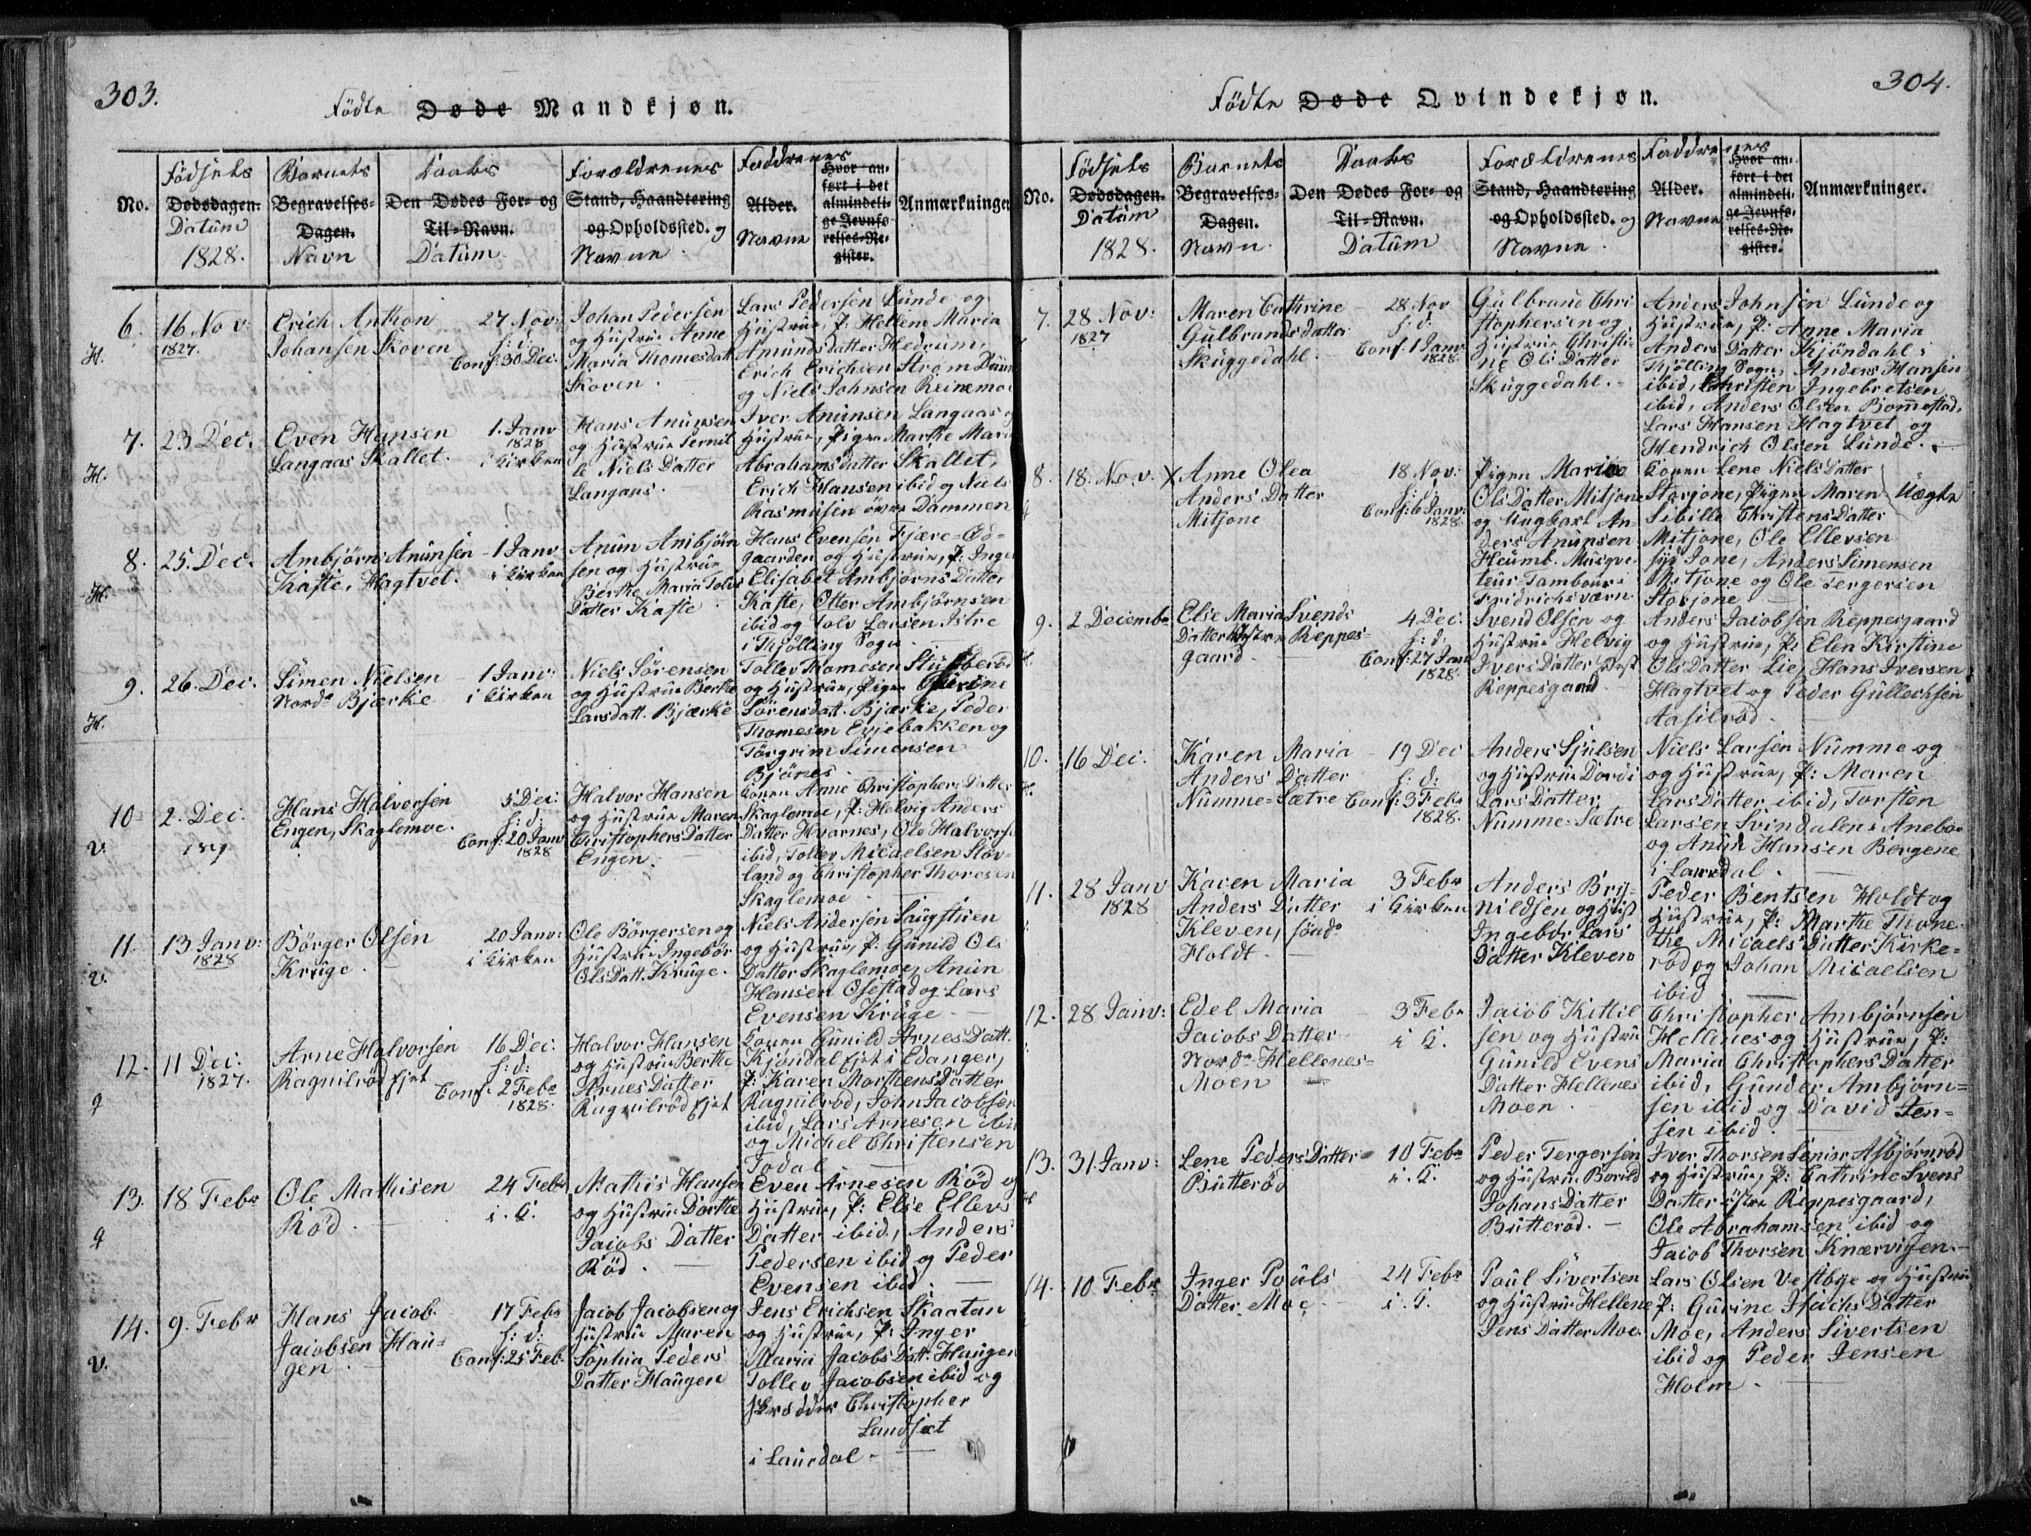 303.
Födte Døde Mandkjøn.
No.
Födsels Dødsdagen. Datum 1828.
Barnets Begravelses-Dagen. Navn
Daabs Den Dødes For- og Til-Navn. Datum
Forældrenes Stand, Haandtering og Opholdssted. og Navne
Faddrenes Alder. Navne
Hvor anført i det almindelige Jevnførelses-Register.
Anmærkninger
6. 16 Nov: 1827. H.
Erich Anthon
Johansen Skoven
27 Nov:
h: d:
Conf: 30 Dec.
Johan Pedersen
og Hustrue Anne
Maria Thomesdatt
Skoven
Lars Pedersen Lunde og
Hustrue, P: Hellene Maria
Amunds datter Hedrum,
Erich Erichsen Strøm
og Niels Johnsen Reinemo
7. 23 Dec. H.
Even Hansen
Langaas Skallet.
1. Janv
1828
i Kirken
Hans Anunsen
og Hustrue Pernil
le Niels Datter
Langaas.
Iver Anunsen Langaas og
Hustrue, Pigen Marthe Maria
Abrahamsdatter Skallet,
Erich Hansen ibid og Niels
Rasmusen över Dammen
8. 25. Dec. H.
Ambjörn Anunsen
Kaste, Hagtvet.
1 Janv
i Kirken
Anun Ambjörn
sen og Hustrue
Berthe Maria Tolvs
Datter Kaste
Hans Evensen Fjære Öd-
gaarden og Hustrue, P: Inger
Elisabet Ambjørns Datter
Kaste, Otter Ambjörnsen
ibid og Tolv Larsen Istre
i Thjølling Sogn.
9. 26. Dec. H.
Simen Nielsen
Nordr Bjærke
1 Janv:
i Kirken
Niels Sörensen
og Hustrue Berthe
Larsdatt. Bjærke
Tollev Thomesen Stubberöd
og Hustrue, Pigen
Sörensdatt. Bjærke, Peder
Thomesen Evjebakken og
Torgrim Simensen
Bjönes
10. 2. Dec. V.
Hans Halvorsen
Engen, Skaglemoe.
5 Dec:
h: d:
Conf: 20 Janv
1828
Halvor Hansen
og Hustrue Maren
Christophers Datter
Engen.
Konen Anne Christophers Datter
Skaglemoe, P: Helvig Anders
Datter Hvarnes, Ole Halvorsen
ibid, Tollev Micaelsen Stov-
land og Christopher Thoresen
Skaglemoe
11. 13 Janv: 1828 V.
Börger Olsen
Kruge
20 Janv:
i Kirken
Ole Börgersen og
Hustrue Ingebör
Ols Datt. Kruge.
Niels Andersen Saugstuen
og Hustrue, P: Gunild Ols
Datter Skaglemoe, Anun
Hansen Olestad og Lars
Evensen Kruge
12. 11 Dec. 1827. q
Arne Halvorsen
Ragnilröd Ejet
16 Dec:
h: d:
Conf: 2 Febr
1828.
Halvor Hansen
og Hustrue Berthe
Arnes Datter
Ragnilröd Ejet
Konen Gunild Arnes Datt.
Kjöndal Ejet i Edanger,
P: Karen Morthens Datter
Ragnilröd, John Jacobsen
ibid, Lars Arnesen
og Michel Christensen
Jodal
13. 18 Febr q
Ole Mathisen
Röd.
24 Febr
i. K.
Mathis Hansen
og Hustrue Dorthe
Jacobs Datter
Röd.
Even Arnesen Röd og
Hustrue, P: Else Ellevs
Datter ibid, Anders
Pedersen ibid og Peder
Evensen ibid.
14. 9. Febr V.
Hans Jacob
Jacobsen Hau-
gen
17 Febr
h: d:
Conf: 25 Feb.
Jacob Jacobsen og
Hustrue Maren
Sophia Peders
Datter Haugen
Jens Erichsen Skaatan
og Hustrue, P: Inger
Maria Jacobs Datt. Haugen
Tollev Jacobsen ibid og
Skrædder Christopher
Landset
i Laurdal
304.
Födte Døde Qvindekjøn.
No.
Födsels Dødsdagen. Datum 1828.
Barnets Begravelses-Dagen. Navn.
Daabs Den Dødes For- og Til-Navn. Datum
Forældrenes Stand, Haandtering og Opholdssted. og Navne.
Faddrenes Alder. Navne
Hvor anført i det almindelige Jevnførelses-Register.
Anmærkninger.
7. 28 Nov: 1827
Maren Cathrine
Gulbrands datter
Skuggedahl
28 Nov
h: d:
Conf: 1 Janv
1828.
Gulbrand Chri
stophersen og
Hustrue Christi
ne Ols Datter
Skuggedahl.
Anders Johnsen Lunde og
Hustrue, P: Anne Maria
Anders Datter Kjöndahl i
Thjølling Sogn, Anders Hansen
ibid, Christen Ingebretsen
ibid, Anders Olsen Bommestad,
Lars Hansen Hagtvet og
Hendrich Olsen Lunde.
8. 18. Nov. X
Anne Olea
Anders Datter
Mitjone
18 Nov:
h: d:
Conf: 6 Janv:
1828.
Pigen Maria
Ols Datter Mitjone
og Ungkarl An-
ders Anunsen
Heum. Musqve-
teur Tambour i
Fridrichsværn
Konen Lene Niels Datter
Storjone, Pigen Maren
Sibille Christens Datter
Mitjone, Ole Ellevsen
Jone, Anders Simensen
Mitjone og Ole Tergersen
Storjone
Uægte
9. 2 Decembr
Else Maria Svends
Datter Reppes-
gaard
4 Dec:
h: d:
Conf: 27 Janv
1828.
Svend Olsen og
Hustrue Helvig
Ivers Datter
Reppesgaard
Anders Jacobsen Reppesgaard
og Hustrue, P: Elen Kirstine
Ols Datter Lie, Hans Iversen
Hagtvet og Peder Gullechsen
Aasilröd
10. 16 Dec.
Karen Maria
Anders Datter
Numme-Sætre
19 Dec
h: d:
Conf: 3 Febr
1828.
Anders Sjulsen
og Hustrue Dordi
Lars Datter
Numme-Sætre
Niels Larsen Numme og
og Hustrue, P: Maren
Lars Datter ibid, Torsten
Larsen Svindalen i Anebo
og Anun Hansen Bergene
i Laurdal
11. 28 Janv 1828
Karen Maria
Anders Datter
Kleven, sönd
Holdt.
3 Febr
i Kirken
Anders Bry-
nildsen og Hust
Ingebor Lars
Datter Kleven
Peder Bentsen Holdt og
Hustrue, P: Marthe Thone-
the Micaels Datter Kirke-
röd og Johan Micaelsen
ibid
12. 28 Janv:
Edel Maria
Jacobs Datter
Nordr Hellenes-
Moen
3 Febr
i K.
Jacob Kittil
sen og Hustrue
Gunild Evens
Datter Hellenes
Moen
Christopher Ambjørnsen
Hellenes og Hustrue, P:
Maria Christophers Datter
ibid, Gunder Ambjørn-
sen ibid og David Jen-
sen ibid.
13. 31. Janv:
Lene Peders Datter
Butteröd
10 Febr
i. K.
Peder Tergersen
og Hustrue Borild
Johans Datter
Butteröd.
Iver Thorsen Senior Asbjørnröd
og Hustrue, P: Cathrine Svens
Datter östre Reppesgaard,
Ole Abrahamsen ibid og
Jacob Thorsen Knærvigen.
14. 10 Febr
Inger Pouls
Datter Moe
24 Febr
i. K.
Poul Sivertsen
og Hustrue Hellene
Jens Datter Moe.
Lars Olsen Vestbye og Hustrue
P: Gurine Isachs Datter
Moe, Anders Sivertsen
ibid og Peder Jensen
Holm